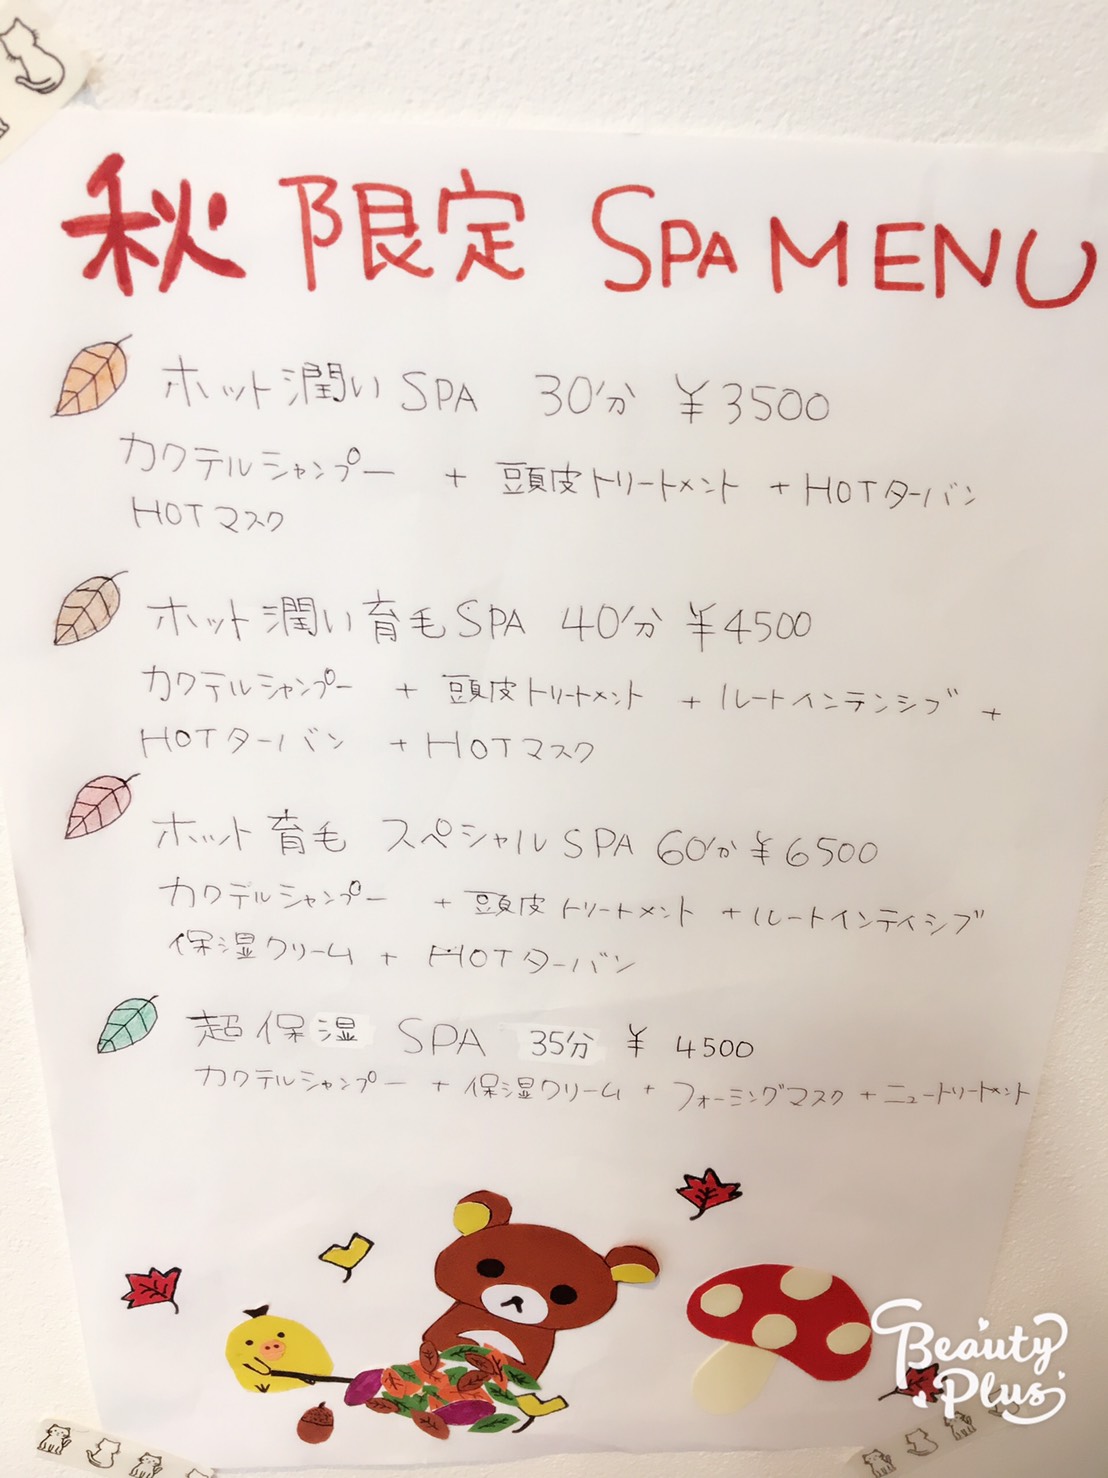 秋限定 SPA MENU
ホット潤い SPA 30分 ¥3500
カクテルシャンプー + 頭皮トリートメント + HOTターバン
HOTマスク
ホット潤い育毛SPA 40分 ¥4500
カクテルシャンプー + 頭皮トリートメント + ルートインテンシブ +
HOTターバン + HOTマスク
ホット育毛 スペシャルSPA 60分¥6500
カクテルシャンプー + 頭皮トリートメント + ルートインテイシブ
保湿クリーム + HOTターバン
超保湿 SPA 35分 ¥ 4500
カクテルシャンプー + 保湿クリーム + フォーミングマスク + ニュートリートメント
Beauty
Plus